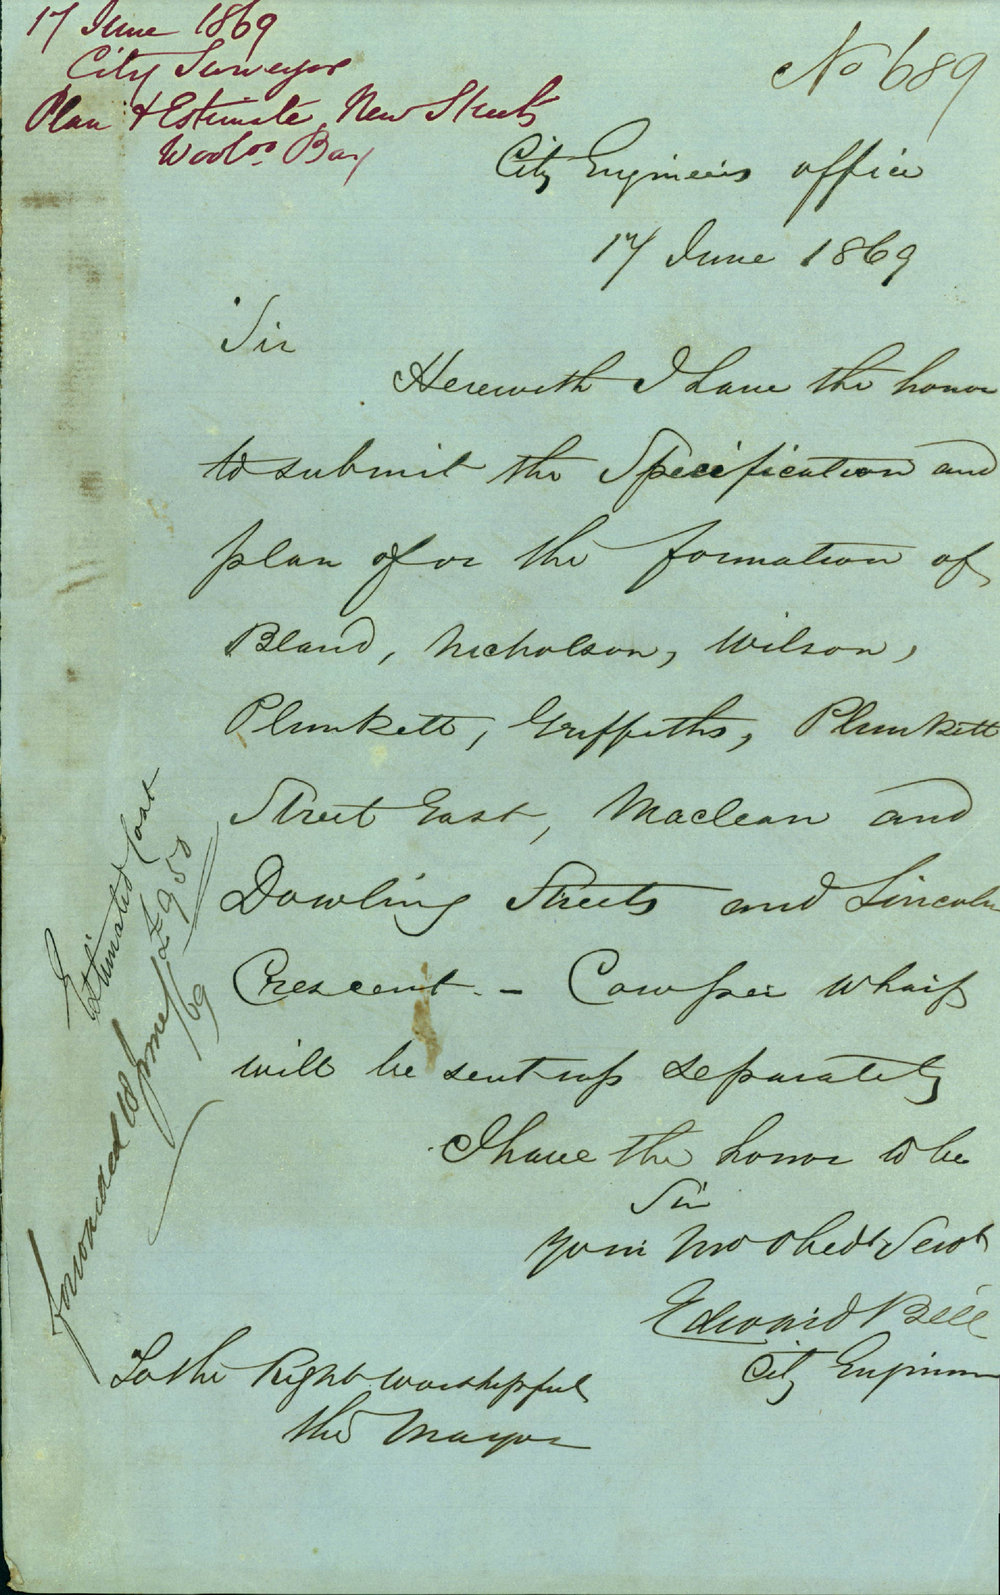 17 June 1869
City Surveyor
Plan & Estimate New Streets
Wooloo Bay
No 689
City Engineers office
17 June 1869
Sir
Herewith I have the honor
to submit the Specification and
plan for the formation of
Bland, Nicholson, Wilson,
Plunkett, Griffiths, Plunkett
Street East, Maclean and
Dowling Streets and Lincoln
Crescent. - Cowper Wharf
will be sent up separately
I have the honor to be
Sir
Your Mo Obedt Servt
Edward Bell
City Engineer
To the Right Worshipful
the Mayor
Estimated Cost
£950
forwarded 18 June/69